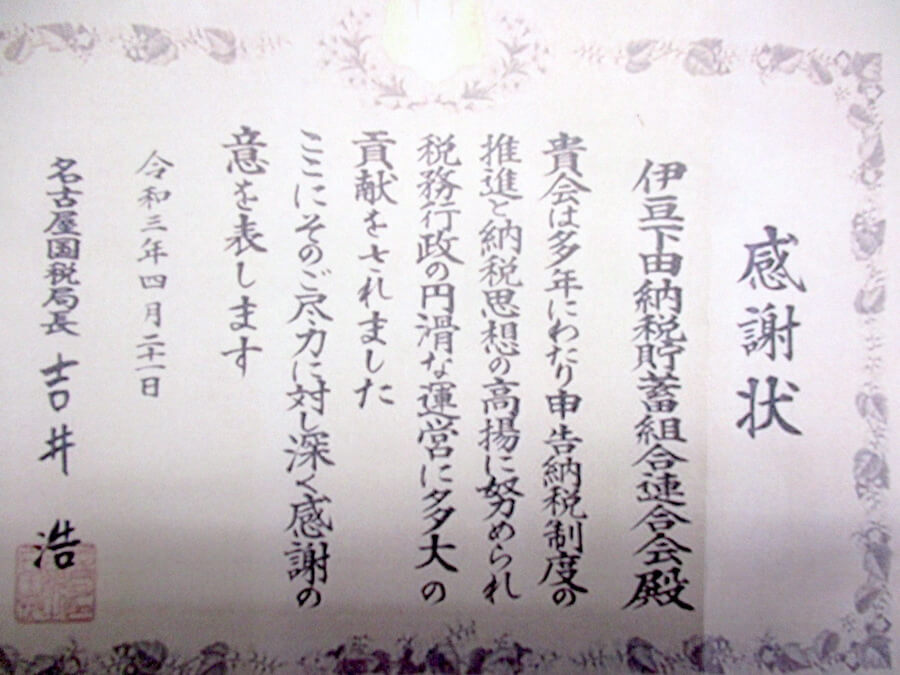 感謝状
伊豆下田納税貯蓄組合連合会殿
貴会は多年にわたり申告納税制度の
推進と納税思想の高揚に努められ
税務行政の円滑な運営に多大の
貢献をされました
ここにそのご尽力に対し深く感謝の
意を表します
令和三年四月二十一日
名古屋国税局長 吉井 浩